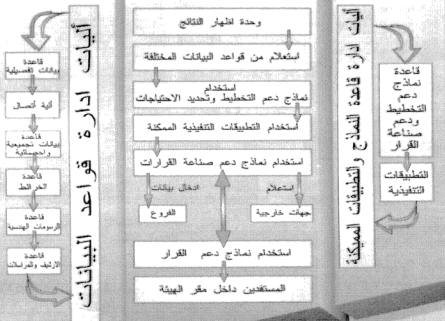 اليات ادارة قاعدة النماذج والتطبيقات المميكنة
قاعدة
نماذج
دعم
التخطيط
ودعم
صناعة
القرار
التطبيقات
التنفيذية
وحدة اظهار النتائج
استعلام من قواعد البيانات المختلفة
استخدام
نماذج دعم التخطيط وتحديد الاحتياجات
استخدام التطبيقات التنفيذية الممكنة
استخدام نماذج دعم صناعة القرارات
استعلام
ادخال بيانات
جهات خارجية
الفروع
استخدام نماذج دعم القرار
المستفدين داخل مقر الهيئة
آليات ادارة قواعد البيانات
قاعدة
بيانات تفصيلية
آلية أتصال
قاعدة
بيانات تجميعية
واحصائية
قاعدة
الخرائط
قاعدة
الرسومات الهندسية
قاعدة
الارشيف والمراسلات